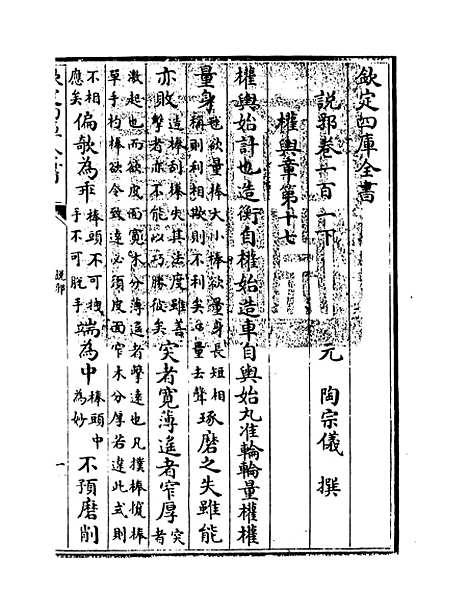 欽定四庫全書
說郛卷一百一下
元 陶宗儀 撰
權輿章第十七
權輿始計也造衡自權始造車自輿始丸准輪輪量權權
量身毬欲量棒大小棒欲量身長短相
稱則利相欺則不利矣量去聲琢磨之失雖能
亦敗造棒刮棒失其法度雖善
擊者亦不能以巧勝彼矣突者寬薄遙者窄厚突者
激起也而欲皮面寬木分薄遙者擊遠也凡撲棒棒
單手杓棒欲令致遠必須皮面窄木分厚若違此式則
不相
應矣偏欹為乖棒頭不可拽
手不可脫手端為中棒頭中
為妙不預磨削
說郛
一